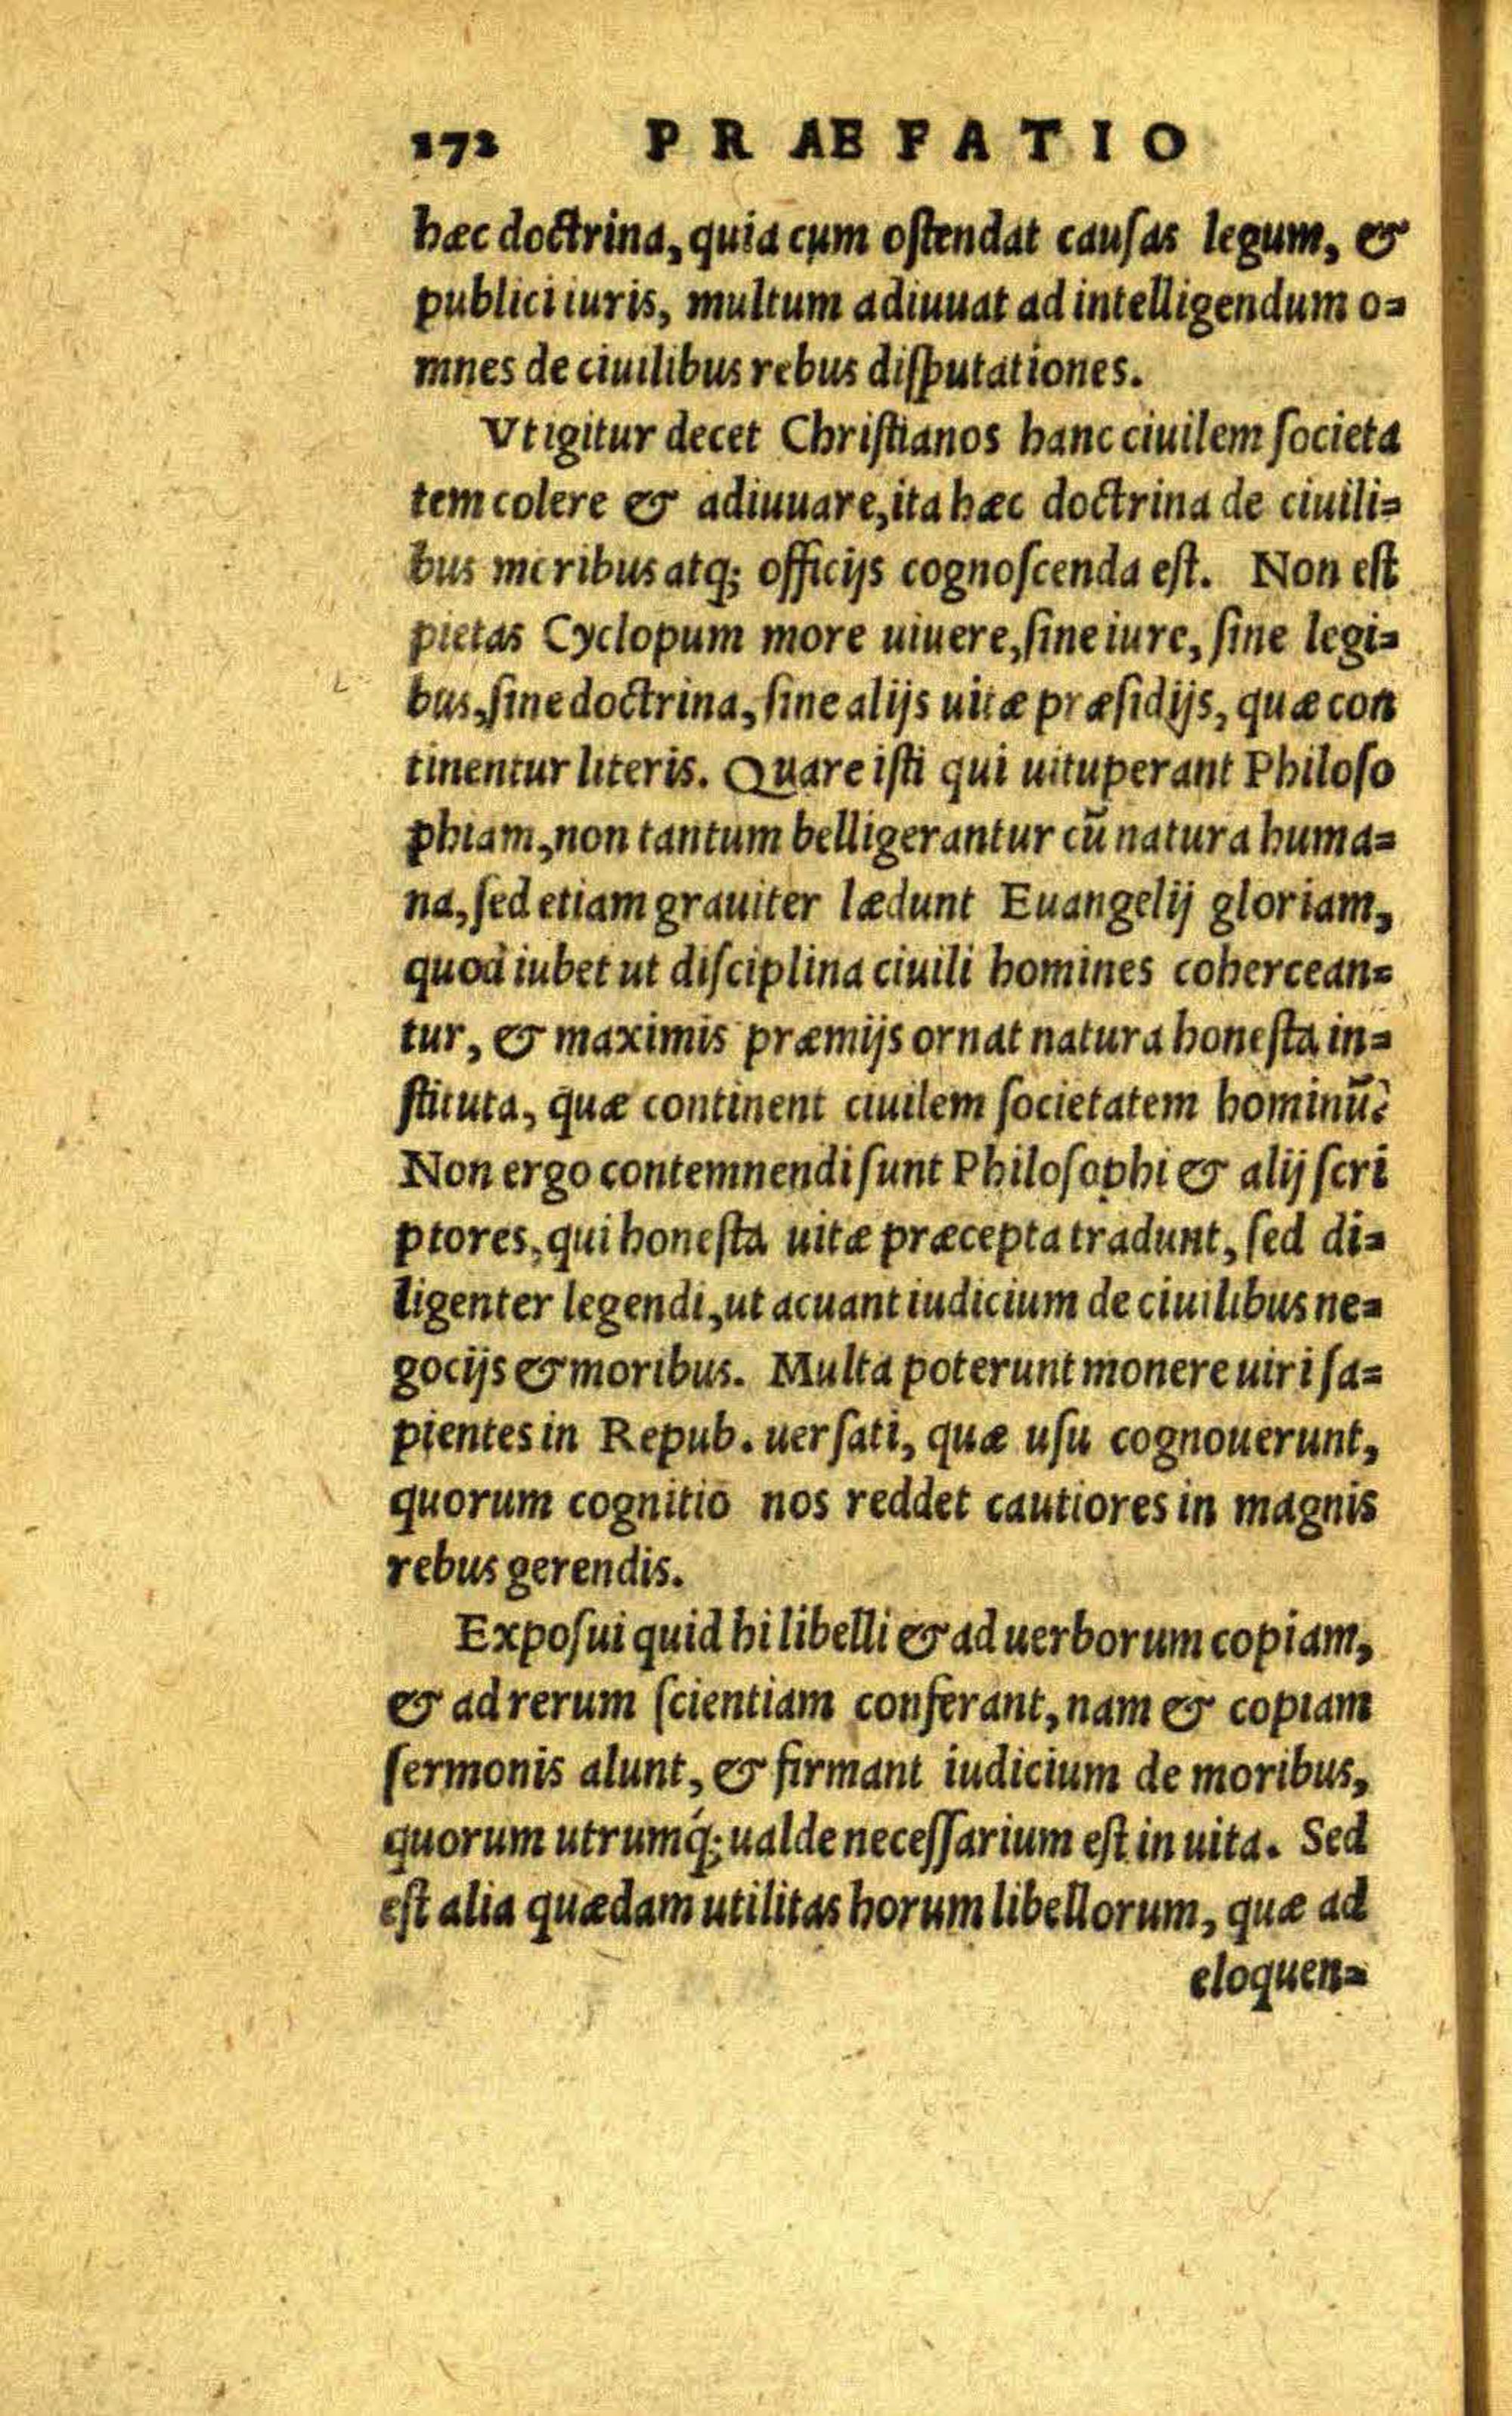 172 PRAEFATIO
hæc doctrina, quia cum oſtendat cauſas legum, &
publici iuris, multum adiuuat ad intelligendum o=
mnes de ciuilibus rebus diſputationes.
Vt igitur decet Chriſtianos hanc ciuilem ſocieta
tem colere & adiuuare, ita hæc doctrina de ciuili=
bus moribus atq; officijs cognoſcenda eſt. Non eſt
pietas Cyclopum more uiuere, ſine iure, ſine legi=
bus, ſine doctrina, ſine alijs uitæ præſidijs, quæ con
tinentur literis. Quare iſti qui uituperant Philoſo
phiam, non tantum belligerantur cũ natura huma=
na, ſed etiam grauiter lædunt Euangelij gloriam,
quod iubet ut diſciplina ciuili homines cohercean=
tur, & maximis præmijs ornat natura honeſta in=
ſtituta, quæ continent ciuilem ſocietatem hominũ?
Non ergo contemnendi ſunt Philoſophi & alij ſcri
ptores, qui honeſta uitæ præcepta tradunt, ſed di=
ligenter legendi, ut acuant iudicium de ciuilibus ne=
gocijs & moribus. Multa poterunt monere uiri ſa=
pientes in Repub. uerſati, quæ uſu cognouerunt,
quorum cognitio nos reddet cautiores in magnis
rebus gerendis.
Expoſui quid hi libelli & ad uerborum copiam,
& ad rerum ſcientiam conferant, nam & copiam
ſermonis alunt, & firmant iudicium de moribus,
quorum utrumq́; ualde neceſſarium eſt in uita. Sed
eſt alia quædam utilitas horum libellorum, quæ ad
eloquen=